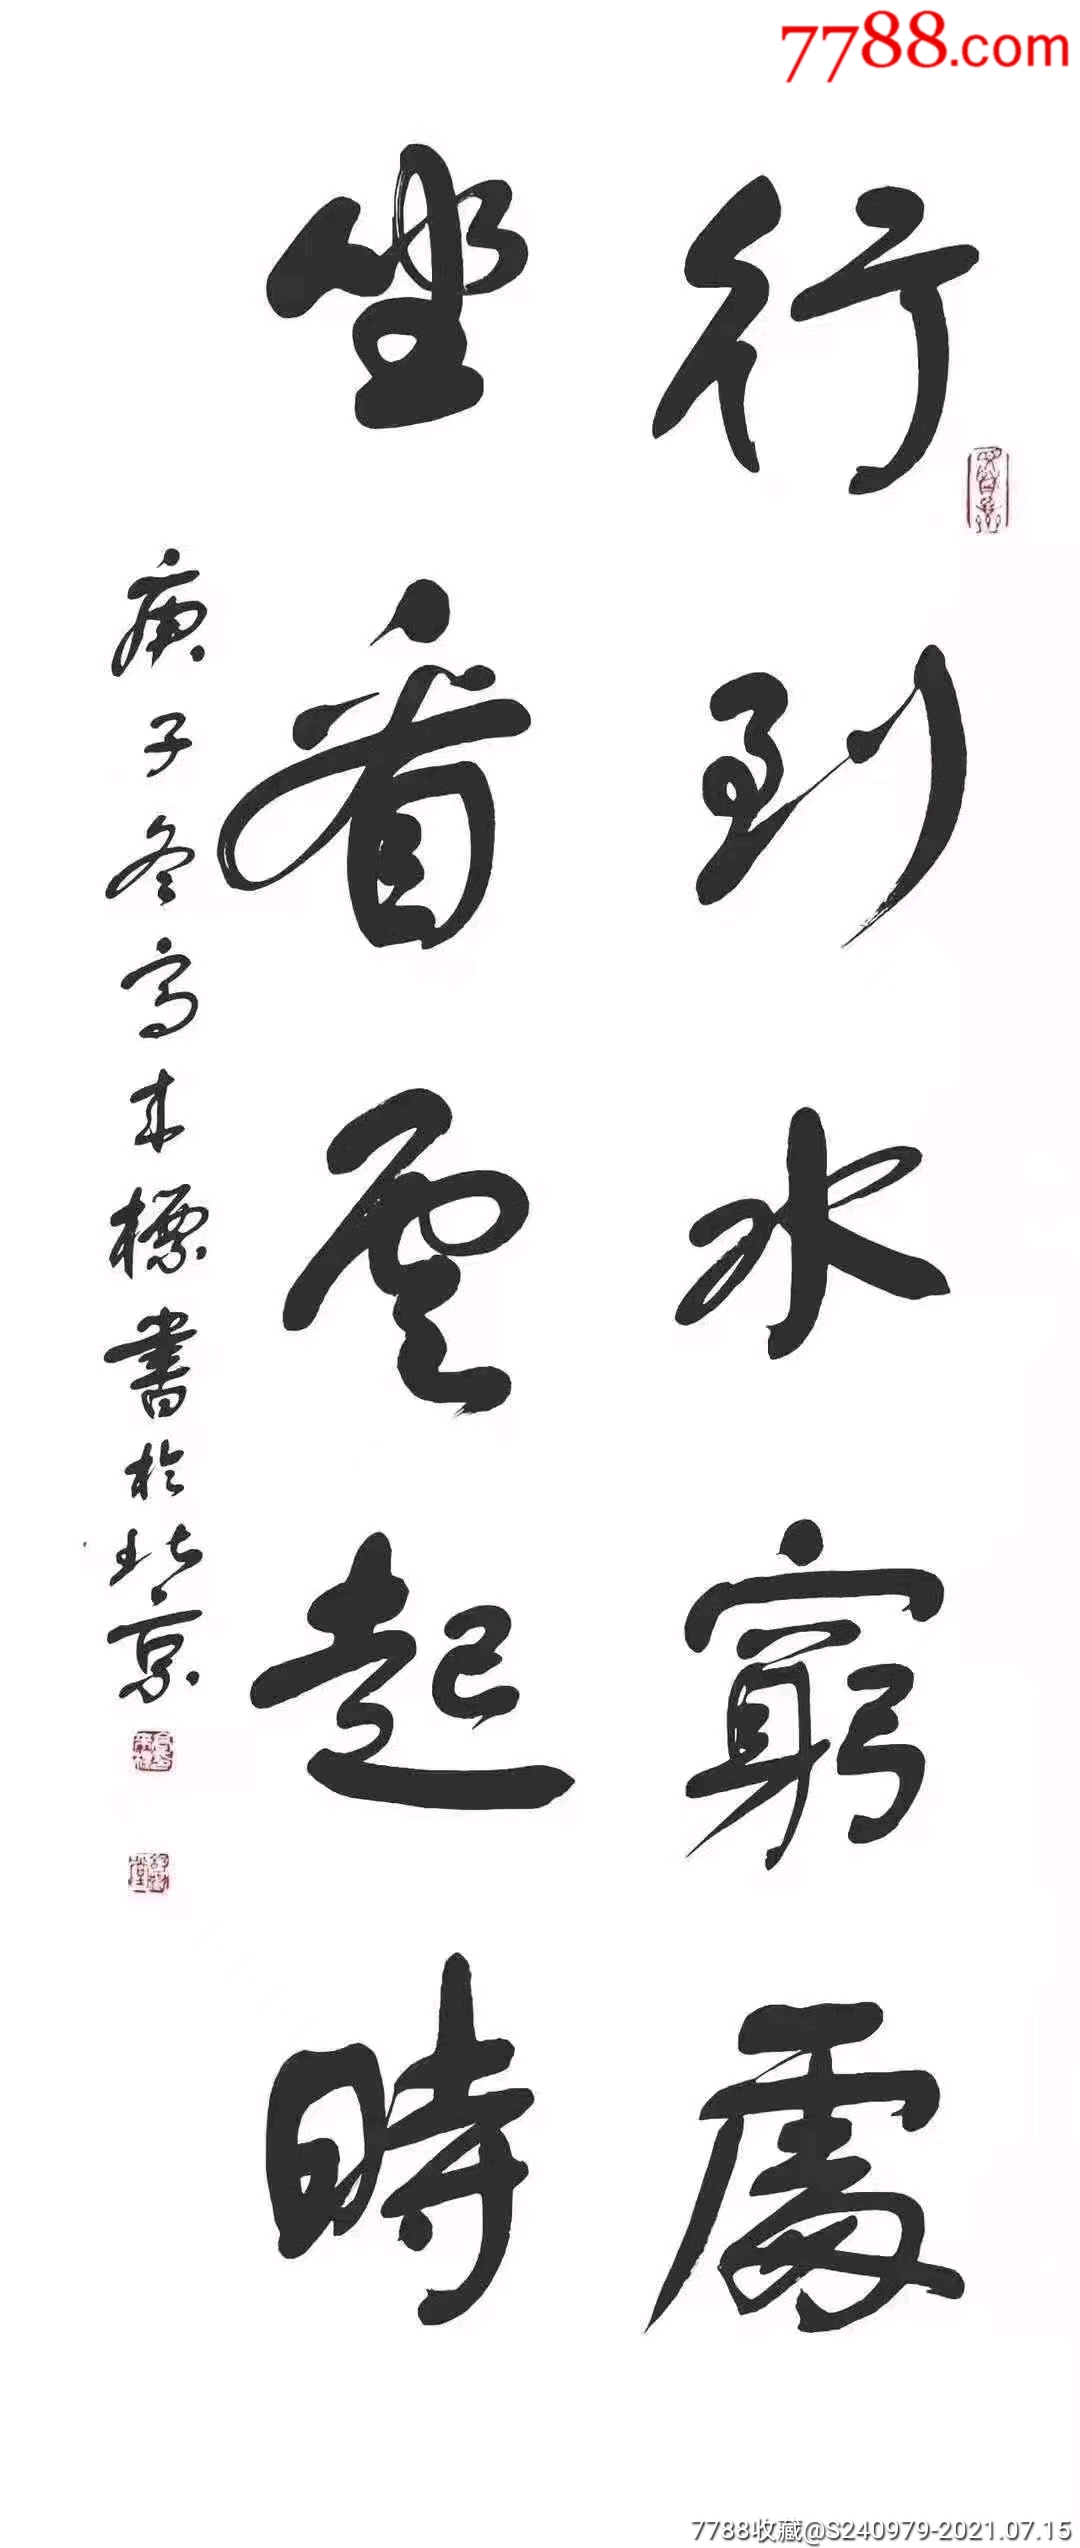 7788.com
行到水窮處
坐看雲起時
庚子冬高來標書於北京
7788收藏@S240979-2021.07.15